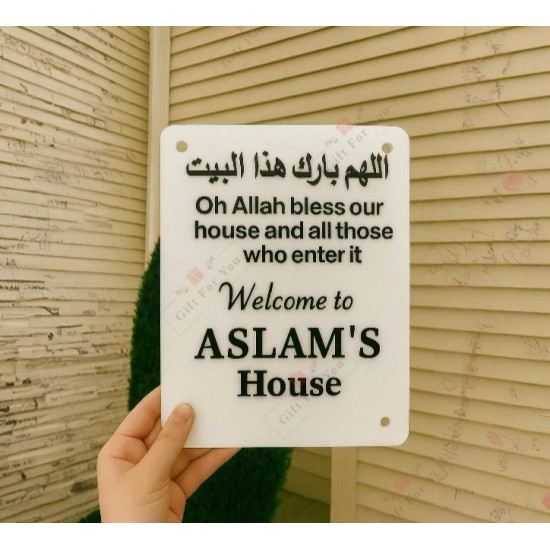 اللهم بارك هذا البيت
Oh Allah bless our
house and all those
who enter it
Welcome to
ASLAM'S
House
Gift For You
Gift For You
Gift For You
Gift For You